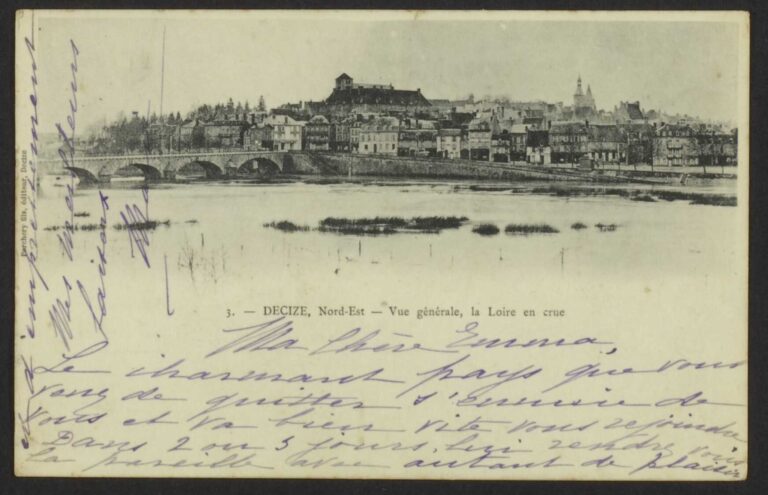 3. — DECIZE, Nord-Est — Vue générale, la Loire en crue
Ma Chère Emma,
Le charmant pays que vous
de quitter s'ennuie de
vous et va bien vite vous rejoindre
Dans 2 ou 3 jours. lui rendre vous
la pareille avec autant de plaisir
et d'empressement
Mes meilleurs
éditeur, Decize